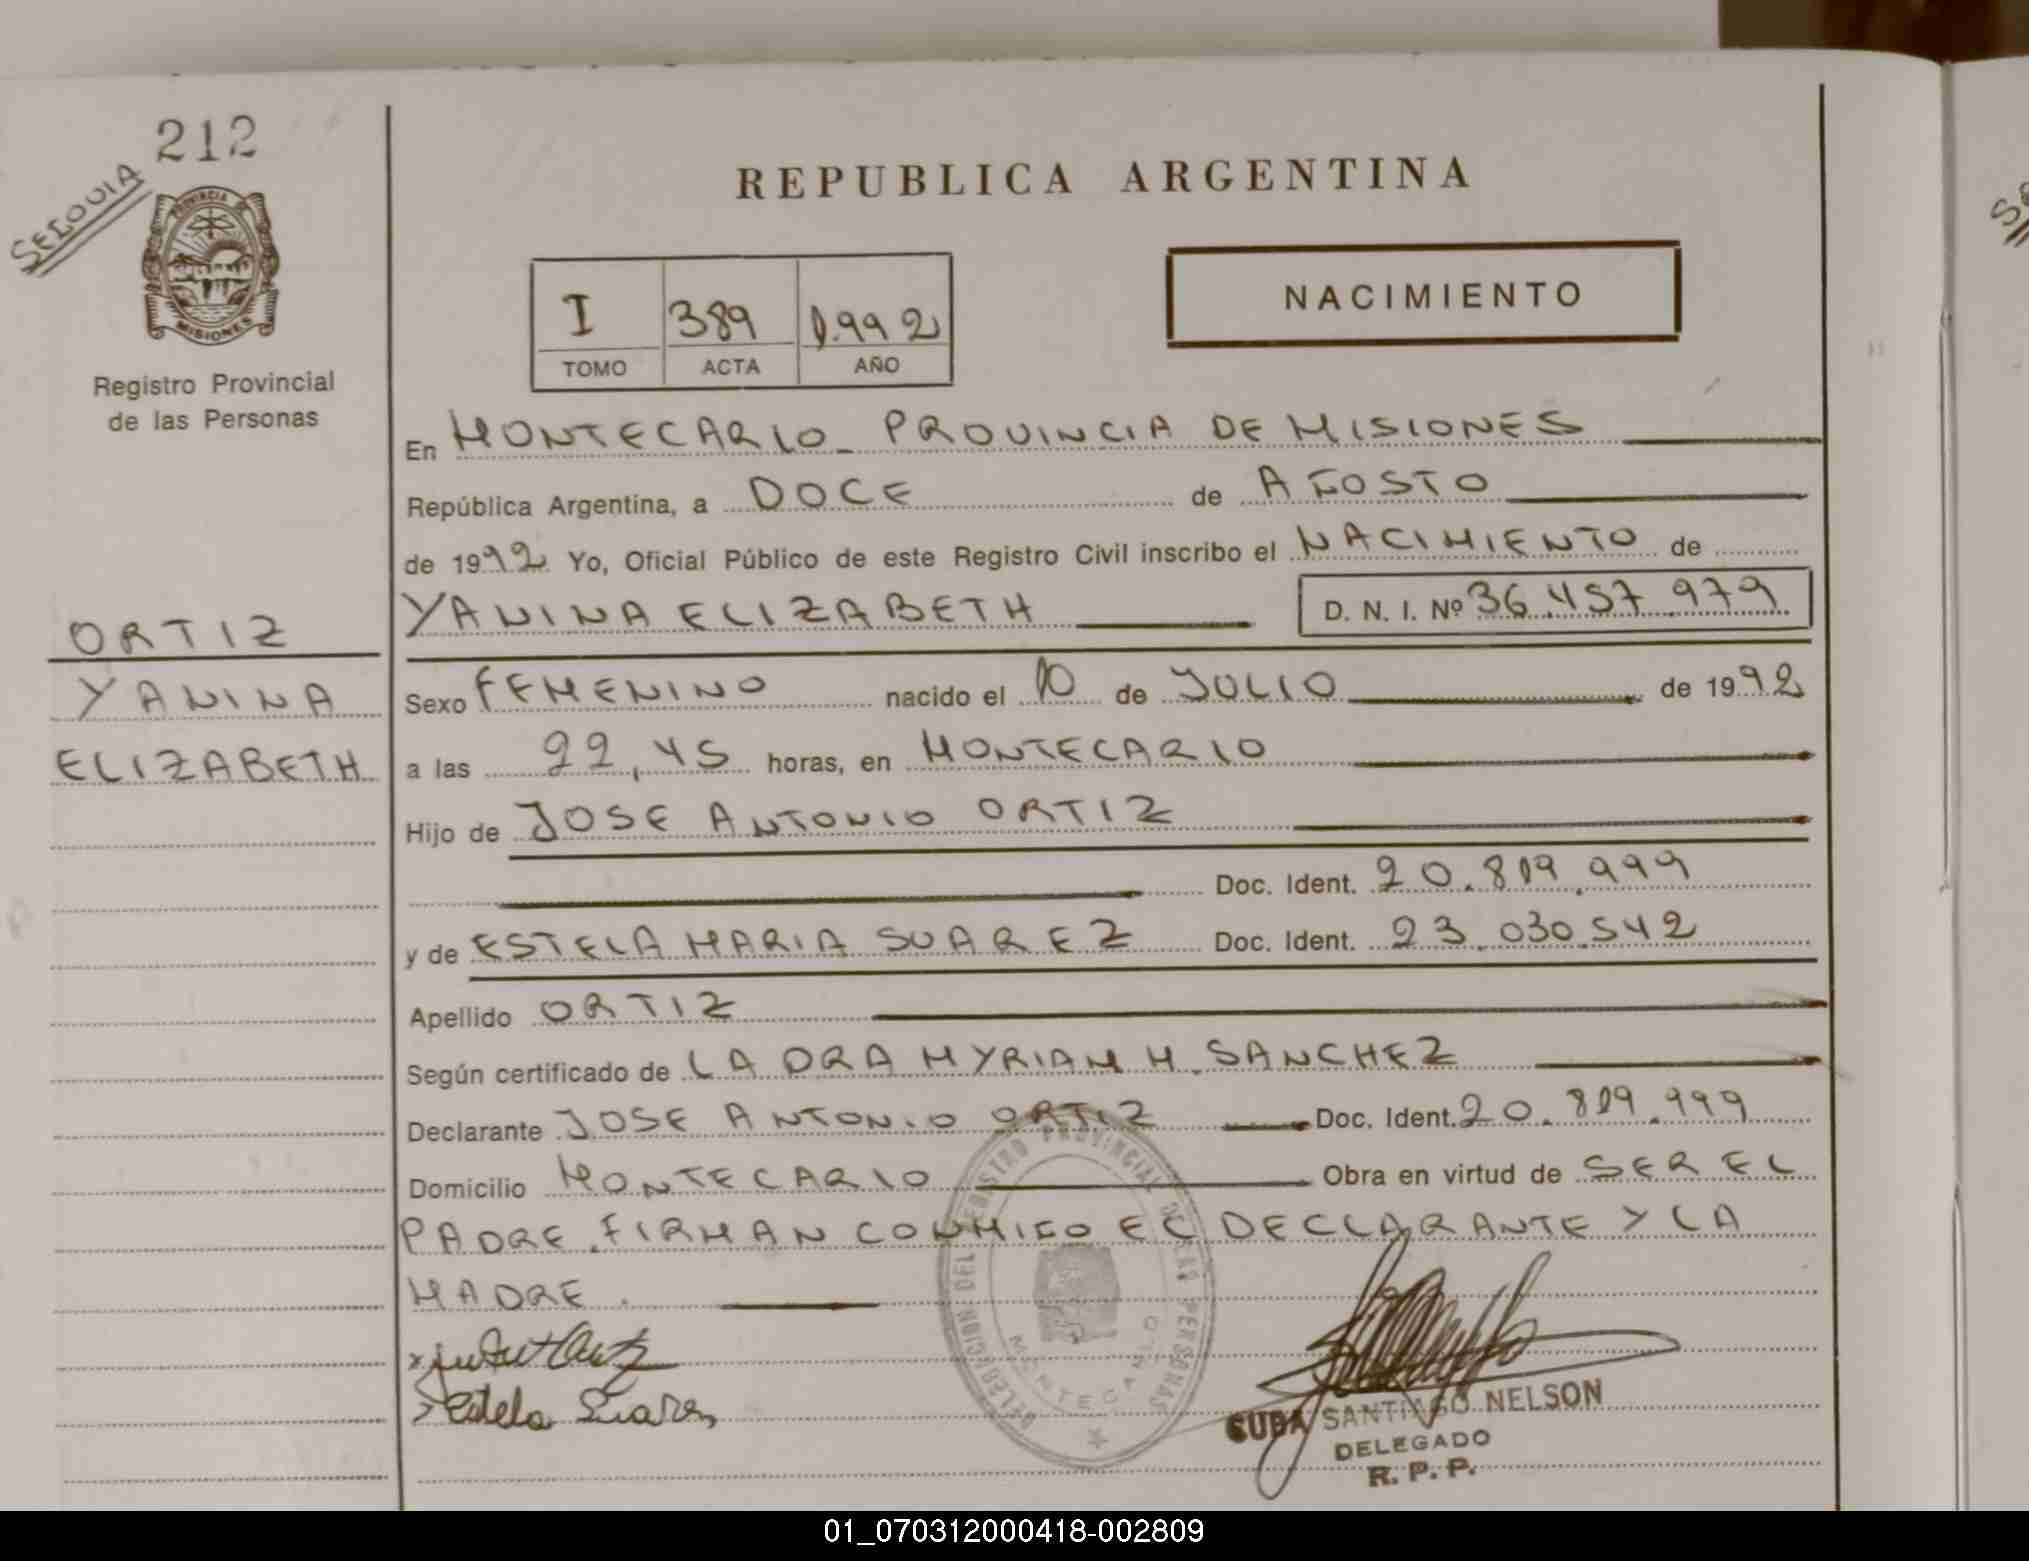 212
SEGOVIA
PROVINCIA DE
MISIONES
Registro Provincial
de las Personas
ORTIZ
YANINA
ELIZABETH
REPUBLICA ARGENTINA
I 389 1.992
TOMO ACTA AÑO
NACIMIENTO
En MONTECARLO - PROVINCIA DE MISIONES
República Argentina, a DOCE de AGOSTO
de 1992 Yo, Oficial Público de este Registro Civil inscribo el NACIMIENTO de
YANINA ELIZABETH D. N. I. Nº 36.457.979
Sexo FEMENINO nacido el 10 de JULIO de 1992
a las 22,45 horas, en MONTECARLO
Hijo de JOSE ANTONIO ORTIZ
Doc. Ident. 20.819.999
y de ESTELA MARIA SUAREZ Doc. Ident. 23.030.542
Apellido ORTIZ
Según certificado de LA DRA MYRIAM M. SANCHEZ
Declarante JOSE ANTONIO ORTIZ Doc. Ident. 20.819.999
Domicilio MONTECARLO Obra en virtud de SER EL
PADRE. FIRMAN CONMIGO EL DECLARANTE Y LA
MADRE.
Estela Suarez
DELEGACION DEL REGISTRO PROVINCIAL DE LAS PERSONAS
MONTECARLO
CUBA SANTIAGO NELSON
DELEGADO
R. P. P.
01_070312000418-002809